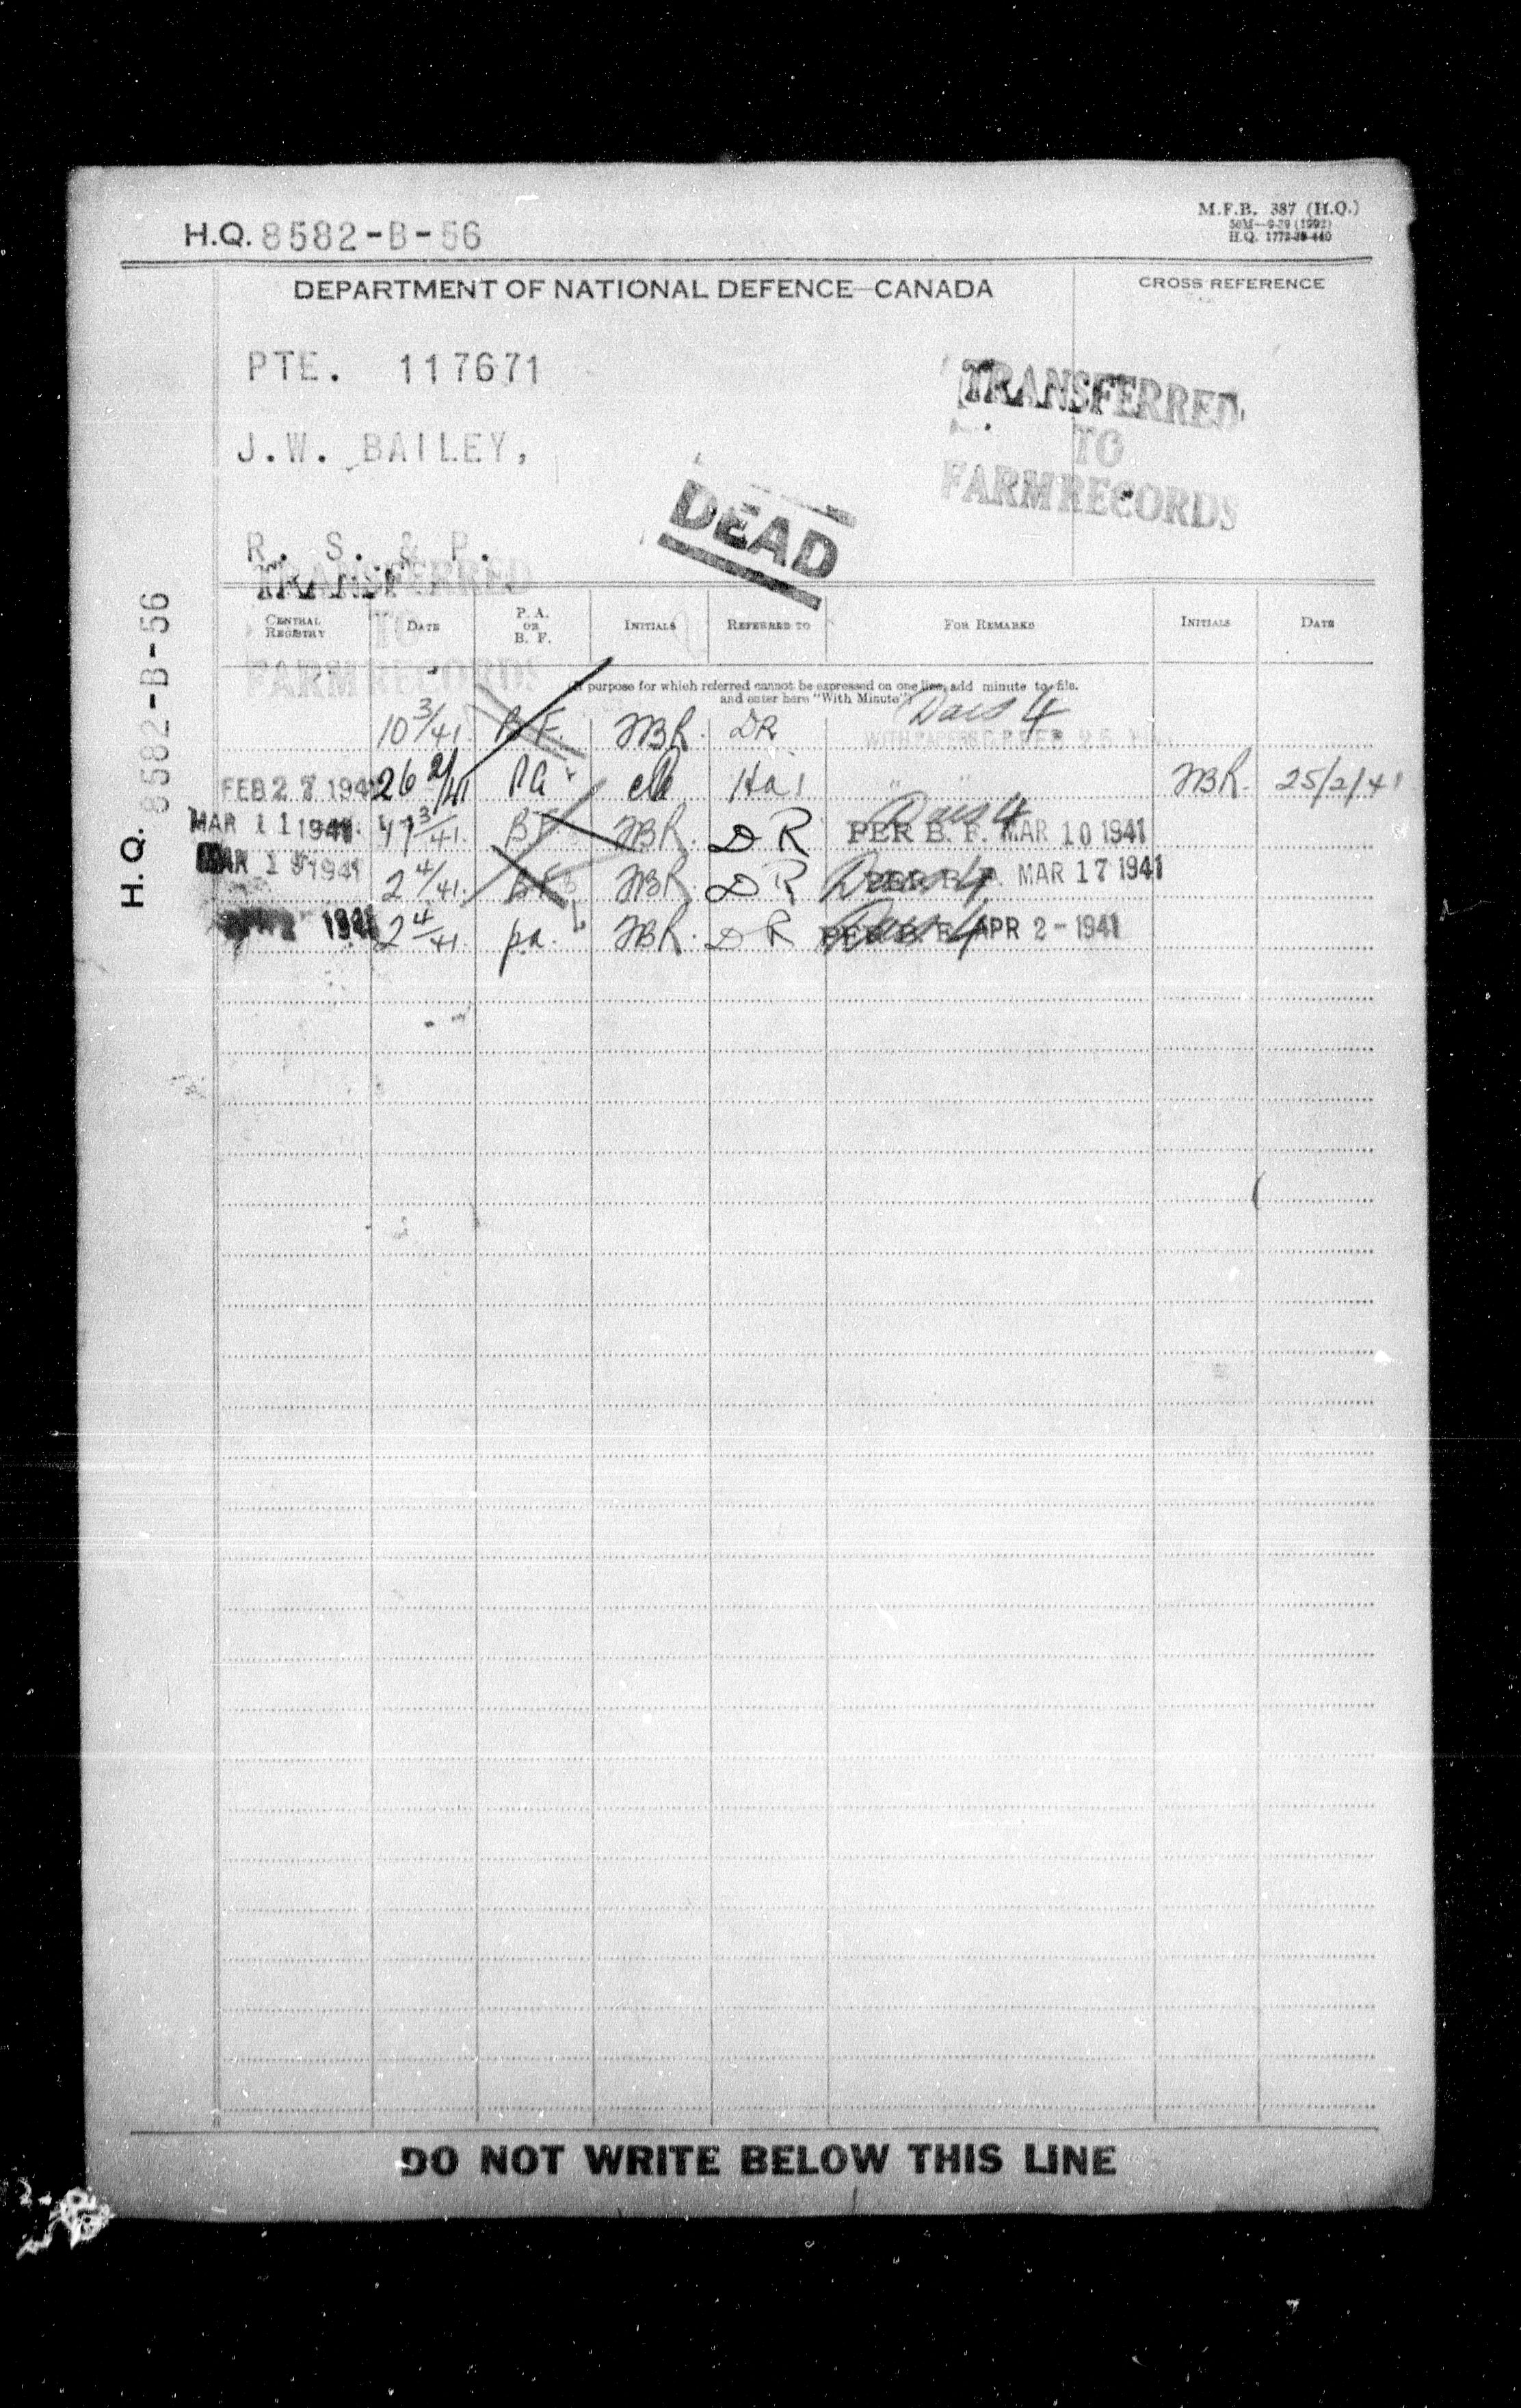 H.Q. 8582-B-56
M.F.B. 387 (H.Q.)
50M-9-39 (1992)
H.Q. 1772-39-440
DEPARTMENT OF NATIONAL DEFENCE—CANADA
CROSS REFERENCE
PTE. 117671
J.W. BAILEY,
R. S. & P.
TRANSFERRED
TO
FARM RECORDS
DEAD
TRANSFERRED
TO
FARM RECORDS
H.Q. 8582-B-56
CENTRAL REGISTRY DATE P. A. OR B. F. INITIALS REFERRED TO FOR REMARKS INITIALS DATE
If purpose for which referred cannot be expressed on one line, add minute to file.
and enter here "With Minute"
10 3/41. B.F. JBR. DR WITH PAPERS FEB 25
FEB 27 1941 26 2/41 PA Ha1 " " JBR. 25/2/41
MAR 11 1941 17 3/41. BF JBR. DR PER B. F. MAR 10 1941
MAR 1 1941 2 4/41. BF JBR. DR PER B. F. MAR 17 1941
1941 2 4/41. pa. JBR. DR PER B. F. APR 2-1941
DO NOT WRITE BELOW THIS LINE